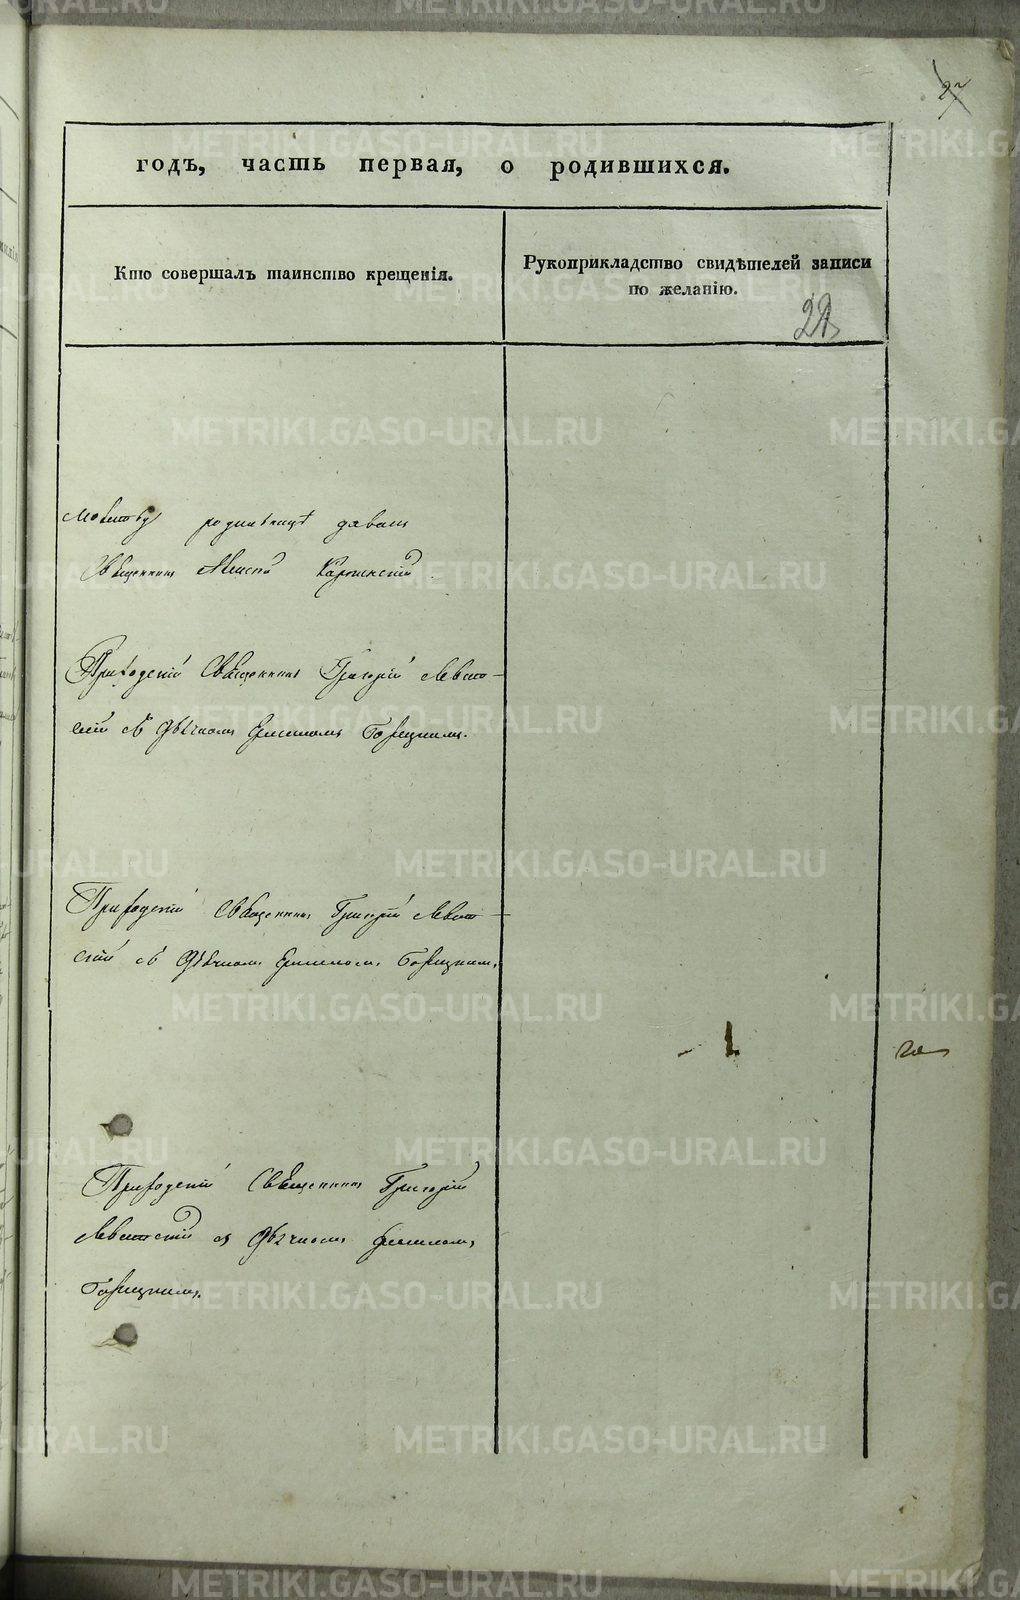 27
годъ, часть первая, о родившихся.
Кто совершалъ таинство крещенія.
Рукоприкладство свидѣтелей записи
по желанію.
Молитву родильницѣ давалъ
Священникъ Алексій Карпинскій
Приходскій Священникъ Григорій Левит-
скій съ Дьячкомъ Ермиломъ Горицкимъ.
Приходскій Священникъ Григорій Левит-
скій съ Дьячкомъ Ермиломъ Горицкимъ.
Приходскій Священникъ Григорій
Левитскій съ Дьячкомъ Ермиломъ
Горицкимъ.
METRIKI.GASO-URAL.RU